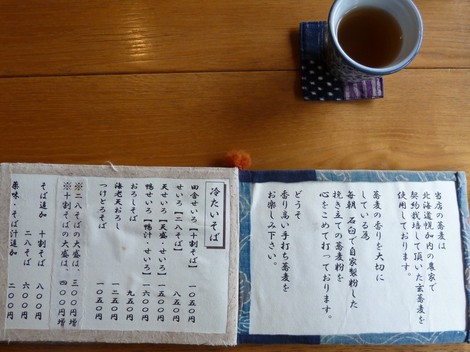 当店の蕎麦は
北海道幌加内の農家で
契約栽培して頂いた玄蕎麦を
使用しております。
蕎麦の香りを大切に
している為
毎朝、石臼で自家製粉した
挽き立ての蕎麦粉を
心をこめて打っております。
どうぞ
香り高い手打ち蕎麦を
お楽しみ下さい。
冷たいそば
田舎せいろ【十割そば】 一〇五〇円
せいろ【二八そば】 八五〇円
天せいろ【天汁・せいろ】 一五〇〇円
鴨せいろ【鴨汁・せいろ】 一六〇〇円
おろしそば 九五〇円
海老天おろし 一二五〇円
つけとろそば 一一五〇円
※二八そばの大盛は、三〇〇円増
※十割そばの大盛は、四〇〇円増
そば追加 十割そば 八〇〇円
二八そば 六〇〇円
薬味・そば汁追加 二〇〇円